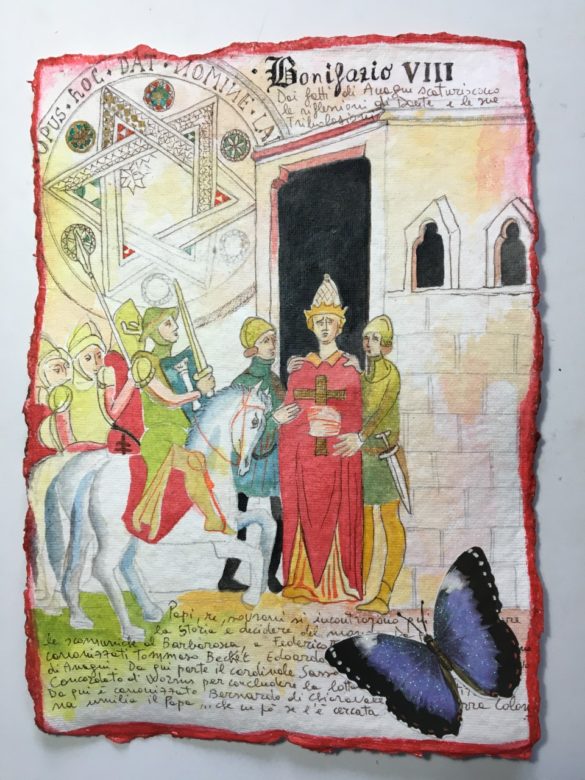 OPUS · HOC · DAT · NOMINE · LA
· Bonifazio VIII
Dai fatti di Anagni scaturiscono
le riflessioni di Dante e le sue
Tribolazioni
Papi, re, sovrani si incontrarono qui
la Storia e decidere del
le scomuniche al Barbarossa, a Federico
canonizzati Tommaso Becket Edoardo
di Anagni. Da qui parte il cardinale Sasso
Concordato di Worms per concludere la lotta
Da qui è canonizzato Bernardo di Chiaravalle
na umilia il Papa... che un pò se l'è cercata